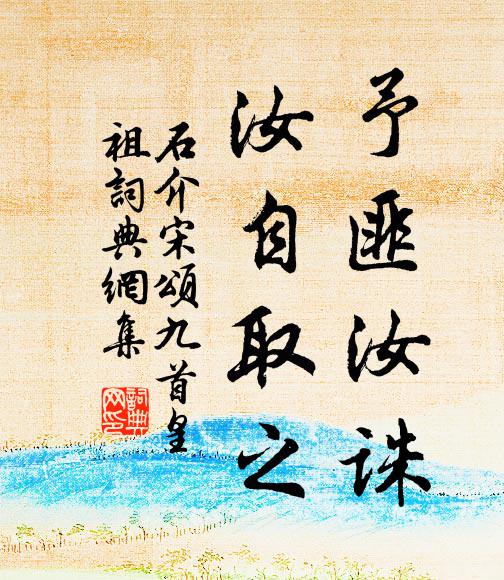 予匪汝誅
汝自取之
石介宋頌九首皇
祖詞典網集
詞典
网印